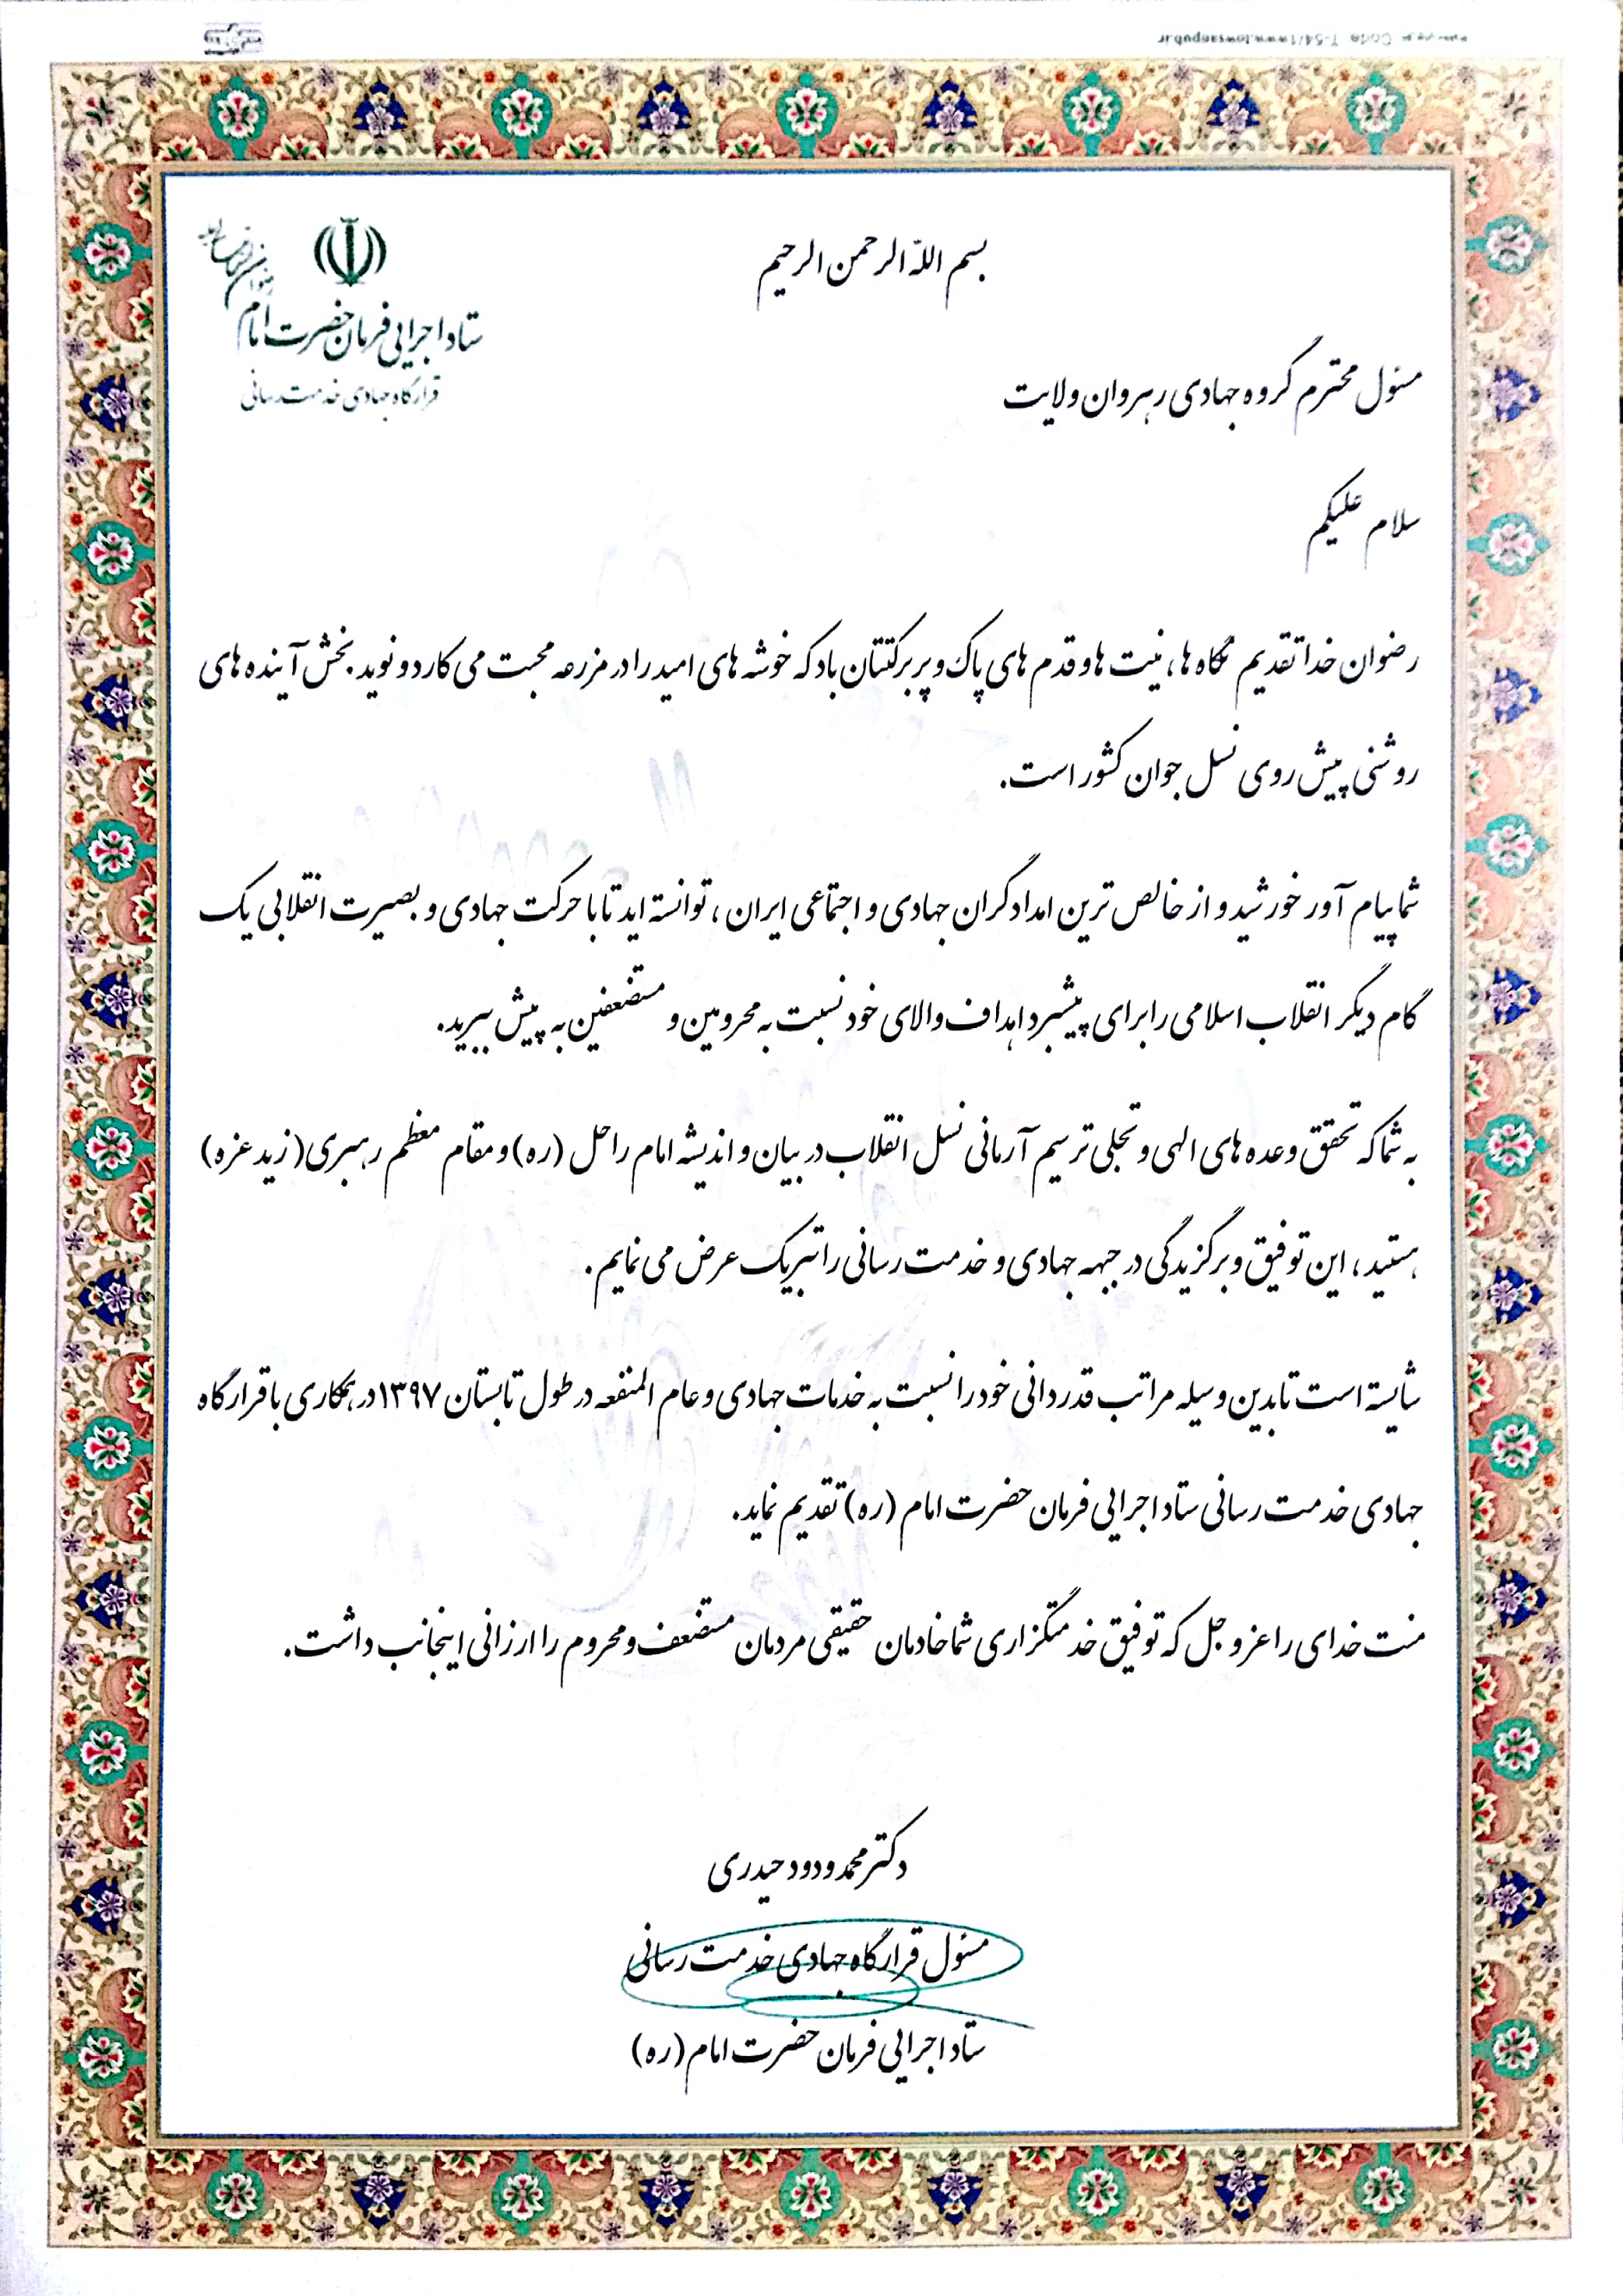 Code T-54/1/www.towsaepub.ir
بسم الله الرحمن الرحیم
ستاد اجرایی فرمان حضرت امام
قرارگاه جهادی خدمت رسانی
مسئول محترم گروه جهادی رهروان ولایت
سلام علیکم
رضوان خدا تقدیم نگاه ها، نیت ها و قدم های پاک و پر برکتتان باد که خوشه های امید را در مزرعه محبت می کارد و نوید بخش آینده های
روشنی پیش روی نسل جوان کشور است.
شما پیام آور خورشید و از خالص ترین امدادگران جهادی و اجتماعی ایران، توانسته اید تا با حرکت جهادی و بصیرت انقلابی یک
گام دیگر انقلاب اسلامی را برای پیشبرد اهداف والای خود نسبت به محرومین و مستضعفین به پیش ببرید.
به شما که تحقق وعده های الهی و تجلی ترسیم آرمانی نسل انقلاب در بیان و اندیشه امام راحل (ره) و مقام معظم رهبری (زید عزه)
هستید، این توفیق و برگزیدگی در جبهه جهادی و خدمت رسانی را تبریک عرض می نمایم.
شایسته است تا بدین وسیله مراتب قدردانی خود را نسبت به خدمات جهادی و عام المنفعه در طول تابستان ۱۳۹۷ در همکاری با قرارگاه
جهادی خدمت رسانی ستاد اجرایی فرمان حضرت امام (ره) تقدیم نماید.
منت خدای را عز و جل که توفیق خدمتگزاری شما خادمان حقیقی مردمان مستضعف و محروم را ارزانی اینجانب داشت.
دکتر محمد ودود حیدری
مسئول قرارگاه جهادی خدمت رسانی
ستاد اجرایی فرمان حضرت امام (ره)